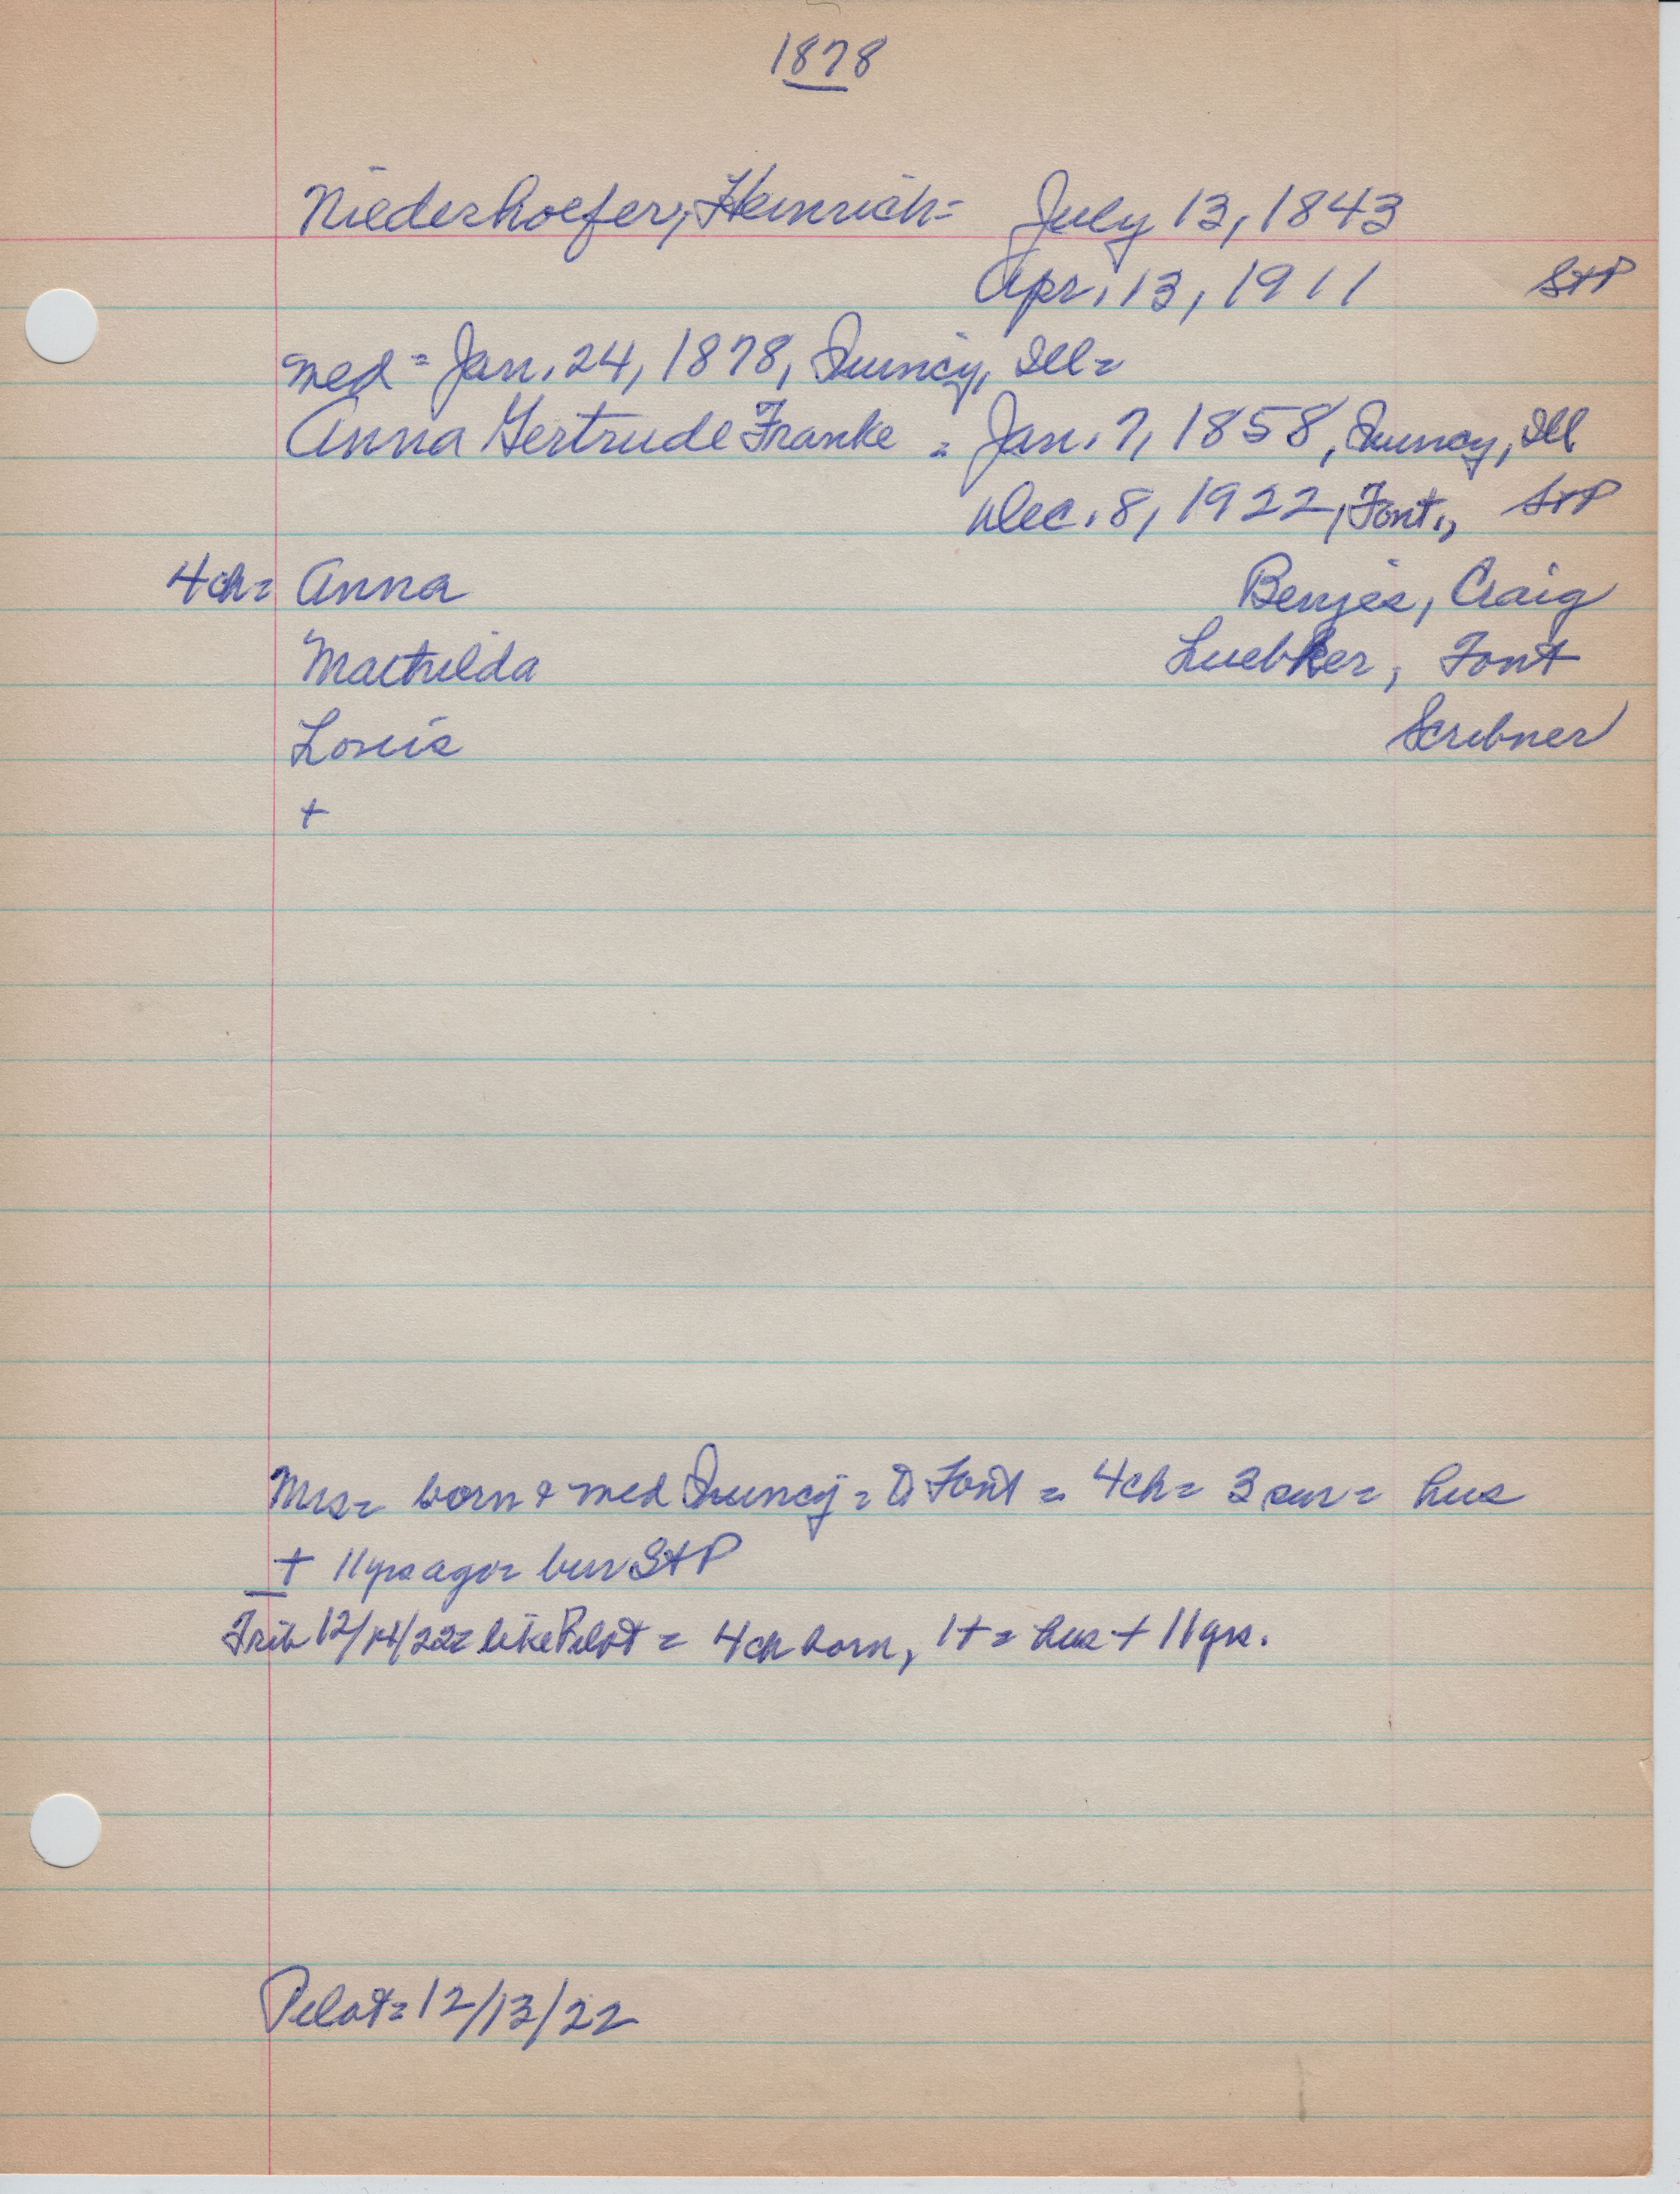 1878
Niederhoefer, Heinrich = July 13, 1843
Apr. 13, 1911 StP
med = Jan. 24, 1878, Quincy, Ill =
Anna Gertrude Franke = Jan. 7, 1858, Quincy, Ill
Dec. 8, 1922, Font., StP
4ch = Anna Benjes, Craig
Mathilda Luebker, Font
Louis Scribner
+
Mrs = born & med Quincy = D Font = 4ch = 3 sur = hus
+ 11 yrs ago = bur StP
Trib 12/14/22 = like Pilot = 4ch born, 1+ = hus + 11 yrs.
Pilot = 12/13/22